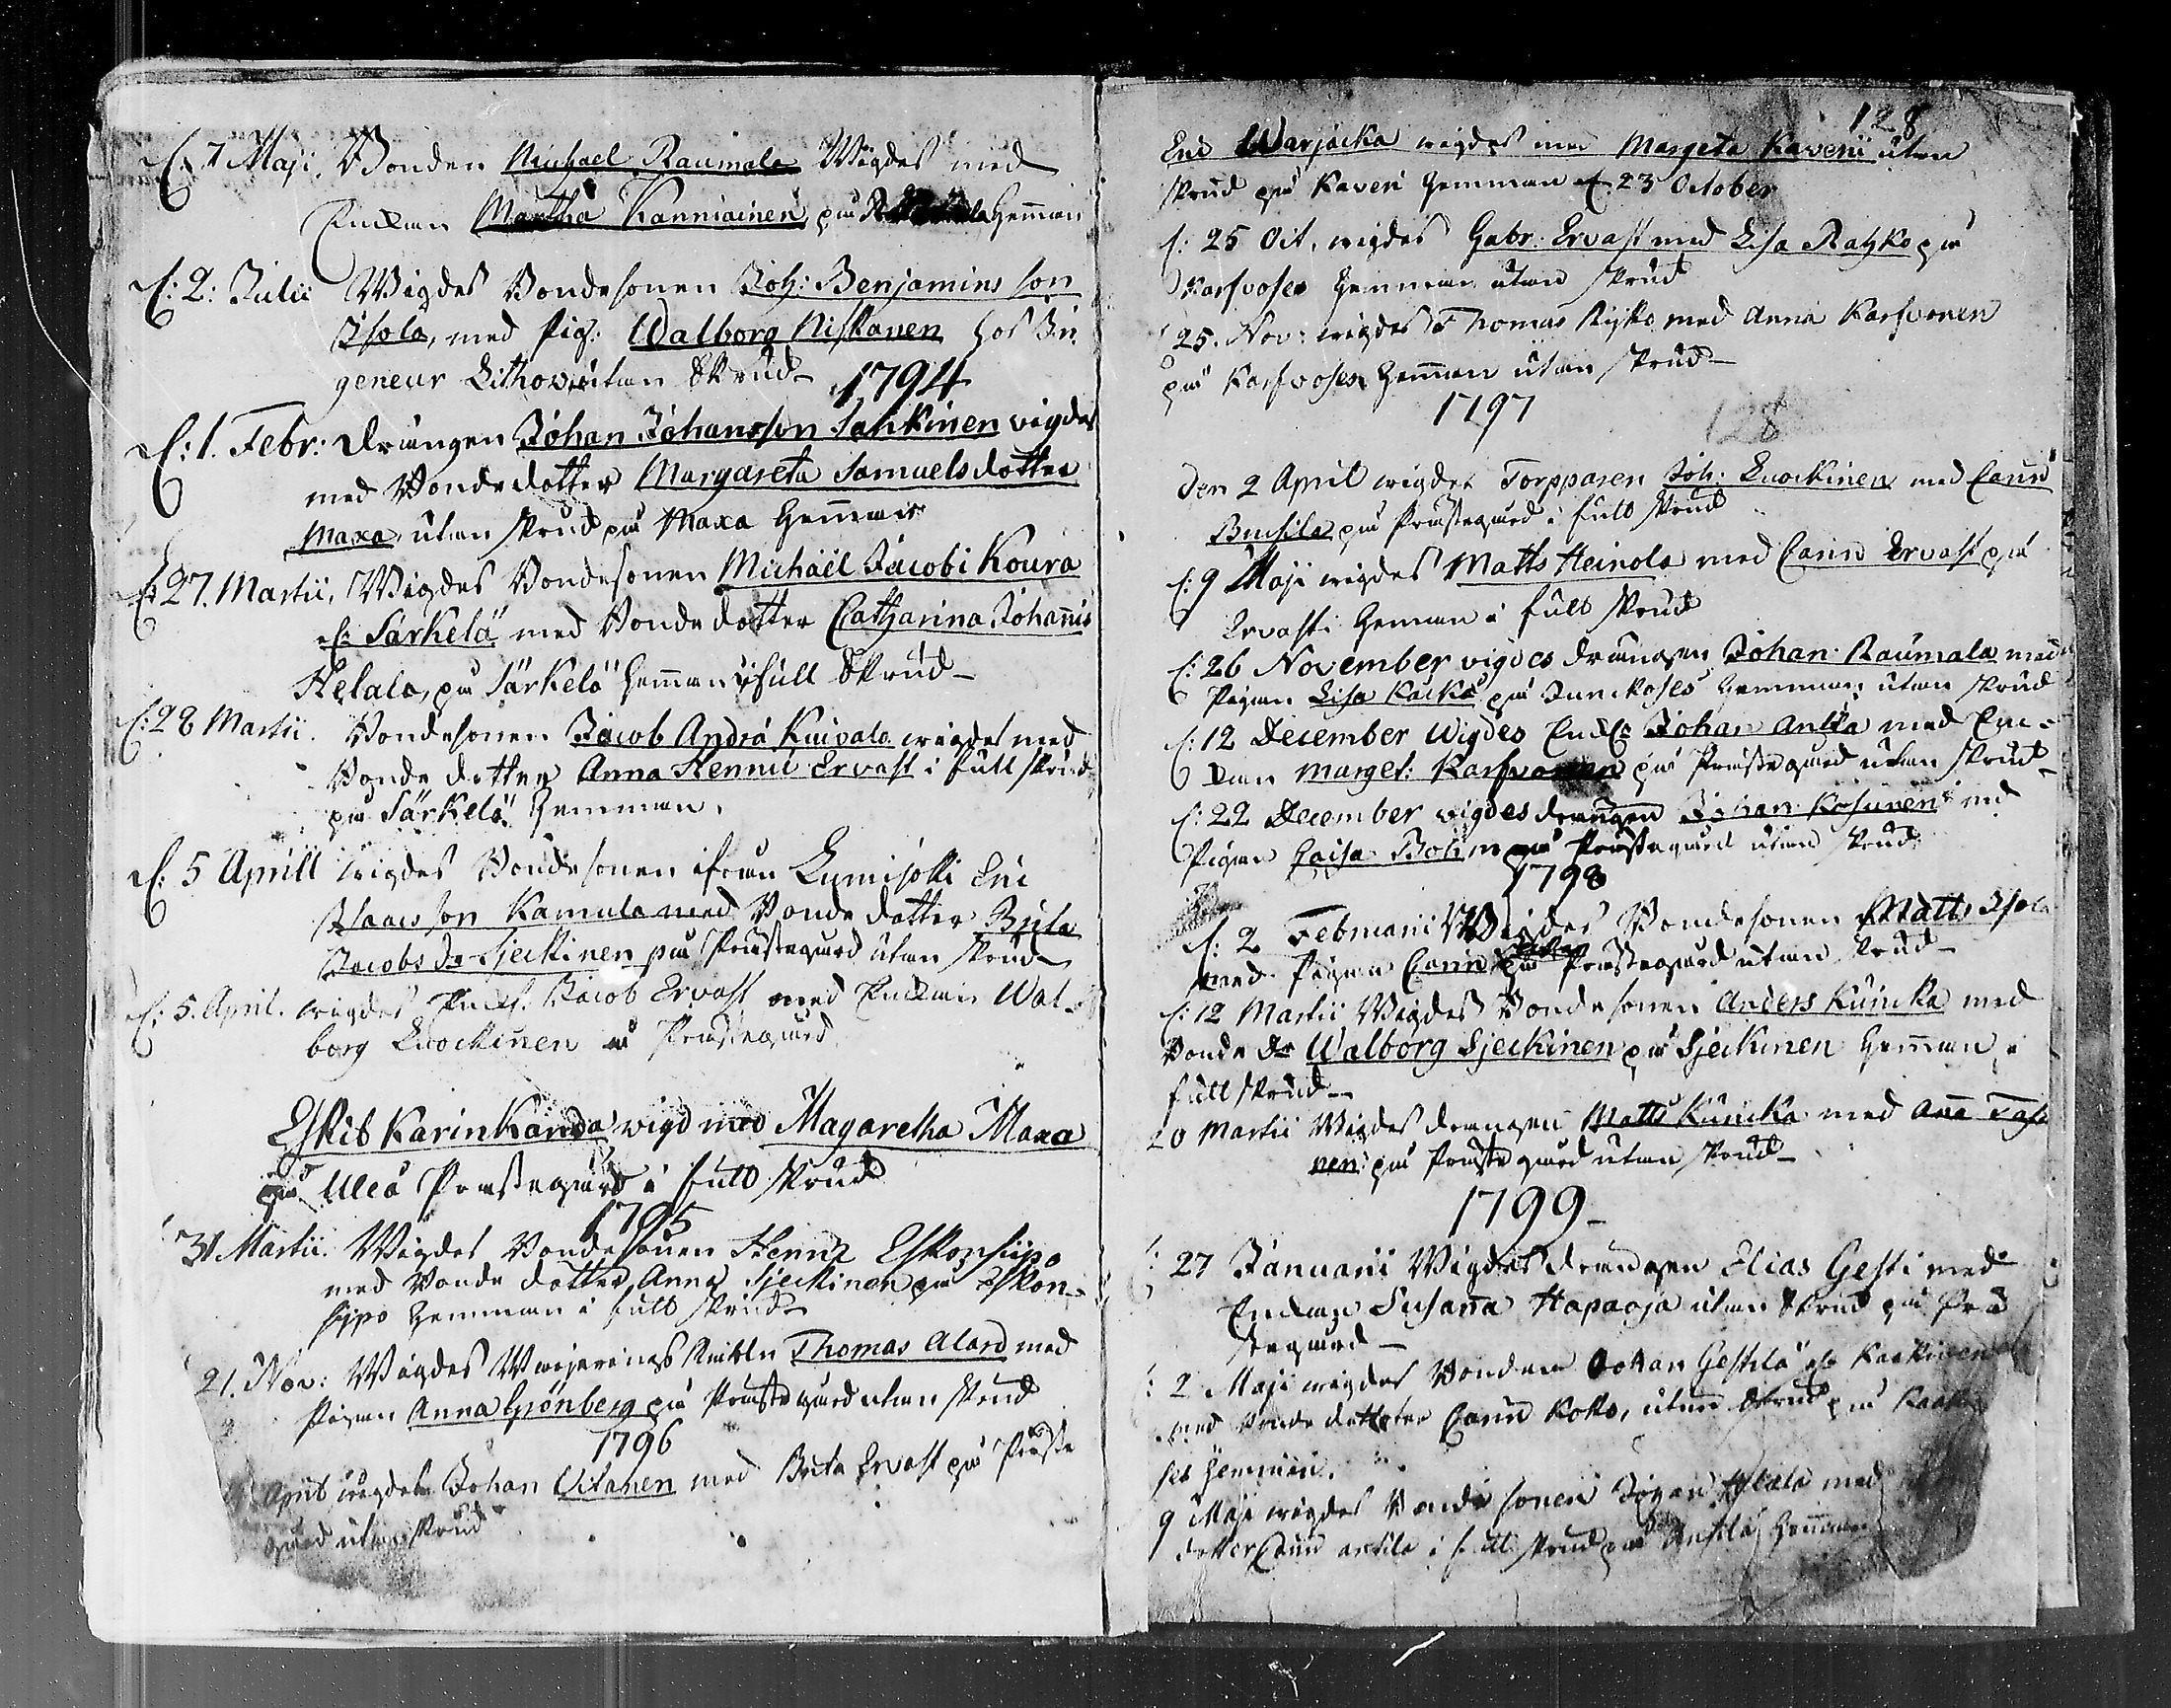 d. 7 Maji. Bonden Michael Raumala Wigdes med
Enckan Martha Kanniainen på Hemman
d: 2: Julii Wigdes Bondesonen Joh: Benjamins son
Isola, med pig: Walborg Niskanen hos In
geneur Lithovius utan Skrud
1794
d: 1. Febr: drängen Johan Johansson Sahkinen vigdes
med Bondedotter Margareta Samuelsdotter
Maxa, utan skrud på Maxa Hemman
d: 27. Martii, Wigdes Bondesonen Michaël Jacobi Koura
el: Särkelä med Bondedotter Catharina Johannis
Helala, på Särkelä hemman i full Skrud
d: 28 Martii. Bondesonen Jacob Andrä Kuivala wigdes med
Bonde dotter Anna Hennii Ervast i full skrud
på Särkelä Hemman.
d: 5 Aprill wigdes Bondesonen ifrån Lumijoki Eric
Isaacsson Kamula med Bonde dotter Brita
Jacobs dr Sjeckinen på Prästegård utan skrud
d: 5. April. wigdes Enckl. Jacob Ervast med Enckan Wal-
borg Luockinen å Prästegård
Eskil Karinkanda wigd med Magaretha Maxa
på Uleå Prästegård i full skrud
1795
31 Martii. Wigdes Bondesonen Henric Eskonsiipo
med Bonde dotter Anna Sjeckinen på Eskon-
siipo Hemman i full skrud
21. Nov: Wigdes Thomas Alard med
pigan Anna Grönberg på Prästegård utan skrud
1796
April wigdes Johan Vitanen med Brita Ervast på Präste
gård utan skrud
128
Eric Warjacka wigdes med Margeta Kaveri utan
skrud på Kaveri Hemman d 23 October
d: 25 Oct. wigdes Gabr: Ervast med Lisa Ratzko på
Karfvoses Hemman utan skrud
25. Nov: wigdes Thomas Kijko med Anna Karfvonen
på Karfvoses Hemman utan skrud
1797
128
den 2 April wigdes Torpparen Joh: Luockinen med Carin
Bursila på Prästegård i full skrud
d: 9 Maji wigdes Matts Heinola med Carin Ervast på
Ervasti Hemman i full skrud
d: 26 November vigdes drängen Johan Raumala med
Pigan Lisa Kacko på Junckoses Hemman utan skrud
d: 12 December Wigdes Enckl: Johan Antta med Enc-
kan Marget: Karfvonen på Prästegård utan skrud
d: 22 December vigdes drängen Johan Kosunen med
Pigan Caisa Bohm på Prästegård utan skrud
1798
d: 2 Februarii Wigdes Bondesonen Matts Isola
med Pigan Carin på Prästegård utan skrud
d: 12 Martii Wigdes Bondesonen Anders Kuricka med
Bonde dr Walborg Sjeckinen på Sjeckinen Hemman i
full skrud
20 Martii Wigdes drängen Matts Kuricka med Anna Taski
nen på Prästegård utan skrud
1799
27 Januarii Wigdes drängen Elias Gesti med
Enckan Susanna Hapaoja utan Skrud på Prä
stegård
2 Maji wigdes Bonden Johan Gestilä el. Karkinen
med Bonde dotter Carin Koko, utan skrud på
Hemman.
9 Maji wigdes Bonde sonen Johan Helala med
dotter Carin Antila i full skrud på Antila Hemman